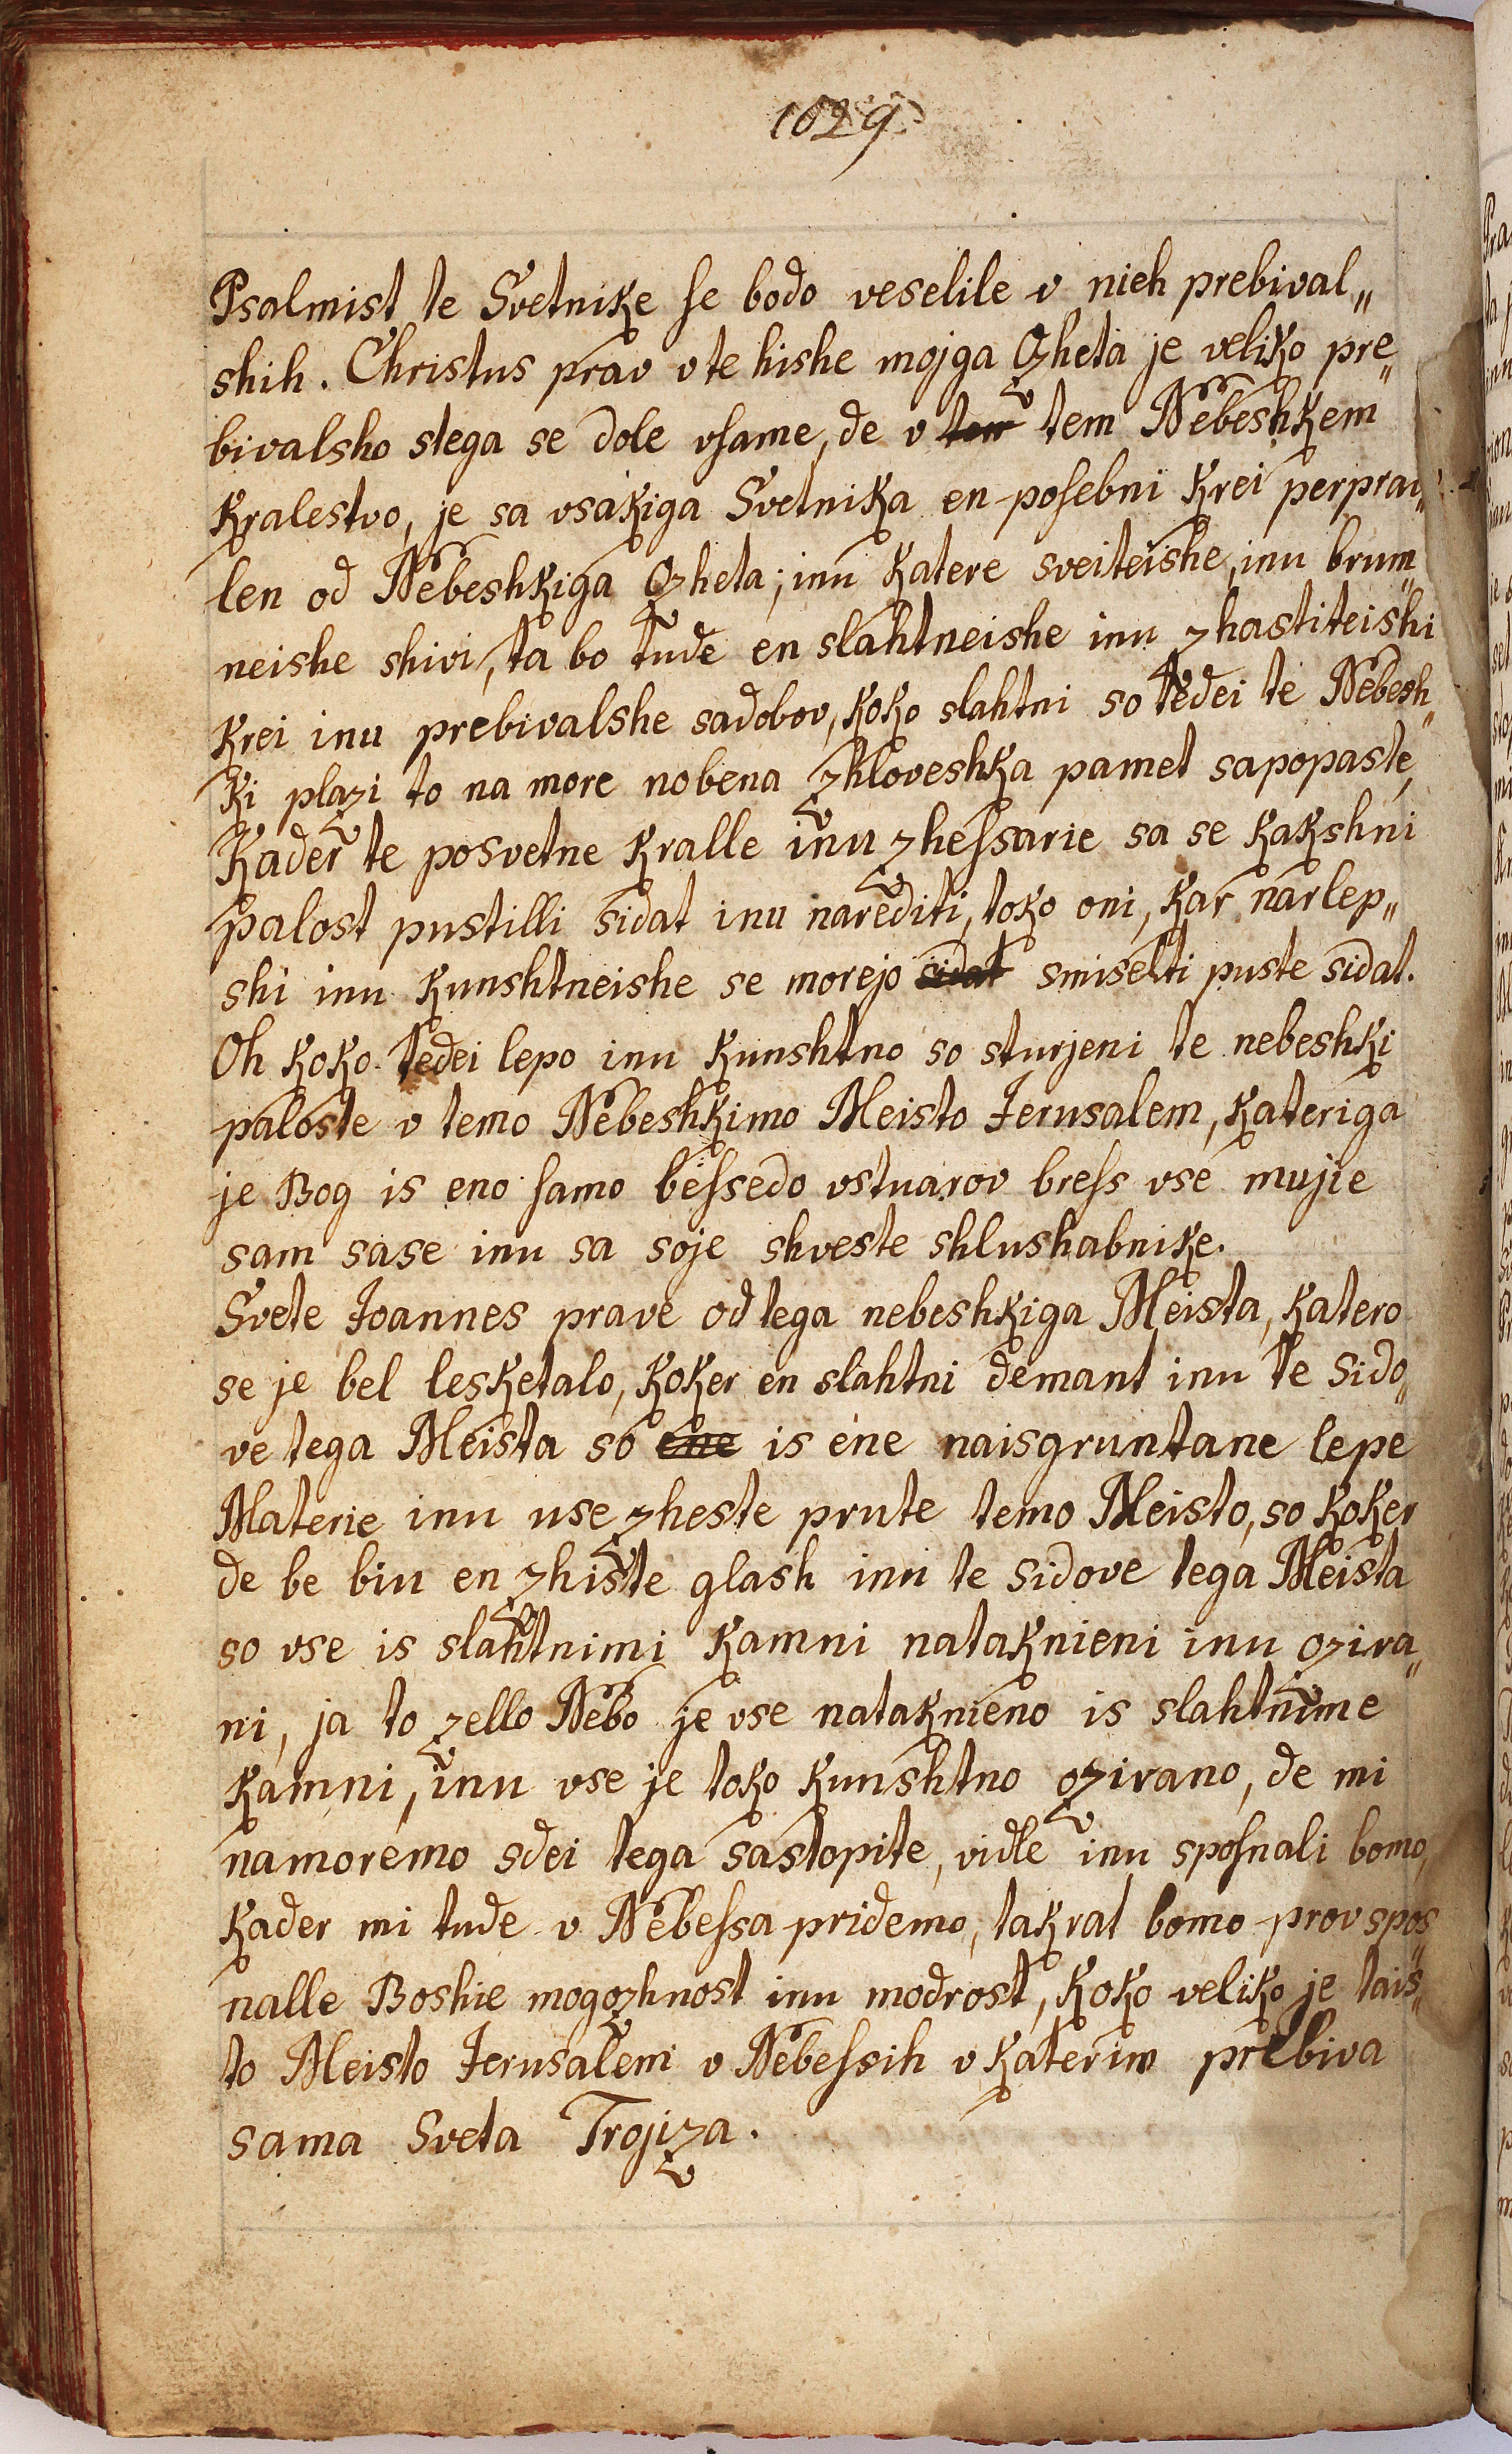 1029
Psalmist te Svetnike ſe bodo veselile v nieh prebival„
shih. Christus prav v te hishe mojga Ozheta je veliko pre„
bivalsho stega se dole vſame, de v tem tem Nebeshkem
kralestvo, je sa vsakiga Svetnika en poſebni krei perprau„
len od Nebeshkiga Ozheta; inu katere sveiteishe, inu brum„
neishe shivi, ta bo tude en slahtneishe inu zhastiteishi
krei inu prebivalshe sadobov, koko slahtni so tedei te Nebesh„
ki plazi to na more nobena zhloveshka pamet sapopaste,
Kader te posvetne kralle inu zheſsarie sa se kakshni
palost pustilli sidat inu narediti, toko oni, kar narlep„
shi inu kunshtneishe se morejo sidat smiselti puste sidat.
Oh koko tedei lepo inu kunshtno so sturjeni te nebeshki
paloste v temo Nebeshkimo Meisto Jerusalem, kateriga
je Bog is eno ſamo beſsedo vstuarov breſs vse mujie
sam sase inu sa soje shveste shlushabnike.
Svete Joannes prave od tega nebeshkiga Meista, katero
se je bel lesketalo, koker en slahtni demant inu te sido„
ve tega Meista so ene is ene naisgruntane lepe
Materie inu use zheste prute temo Meisto, so koker
de be biu en zhiste glash inu te sidove tega Meista
so vse is slahtnimi kamni nataknieni inu ozira„
ni, ja to zello Nebo je vse natakneno is slahtnime
kamni, inu vse je toko kunshtno ozirano, de mi
namoremo sdei tega sastopite, vidle inu spoſnali bomo,
kader mi tude v Nebeſsa pridemo, takrat bomo prov spos„
nalle Boshie mogozhnost inu modrost, koko veliko je tais„
to Meisto Jerusalem v Nebeſsih v katerim prebiva
sama Sveta Trojiza.